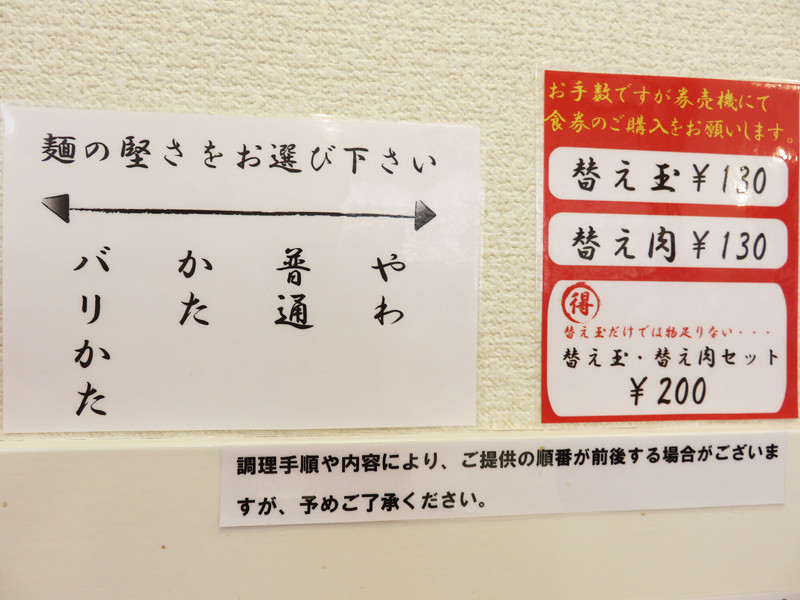 麺の堅さをお選び下さい
バリかた
かた
普通
やわ
お手数ですが券売機にて
食券のご購入をお願いします。
替え玉￥130
替え肉￥130
得
替え玉だけでは物足りない・・・
替え玉・替え肉セット
￥200
調理手順や内容により、ご提供の順番が前後する場合がございま
すが、予めご了承ください。